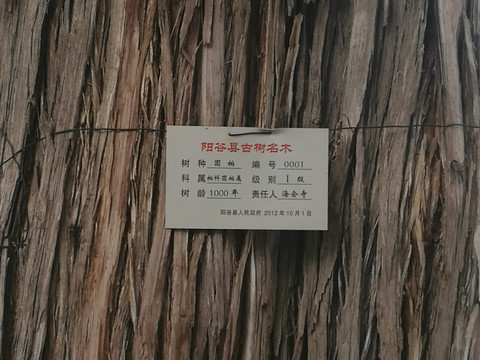 阳谷县古树名木
树 种 圆柏 编 号 0001
科 属 柏科圆柏属 级 别 I 级
树 龄 1000年 责任人 海会寺
阳谷县人民政府 2012年10月1日